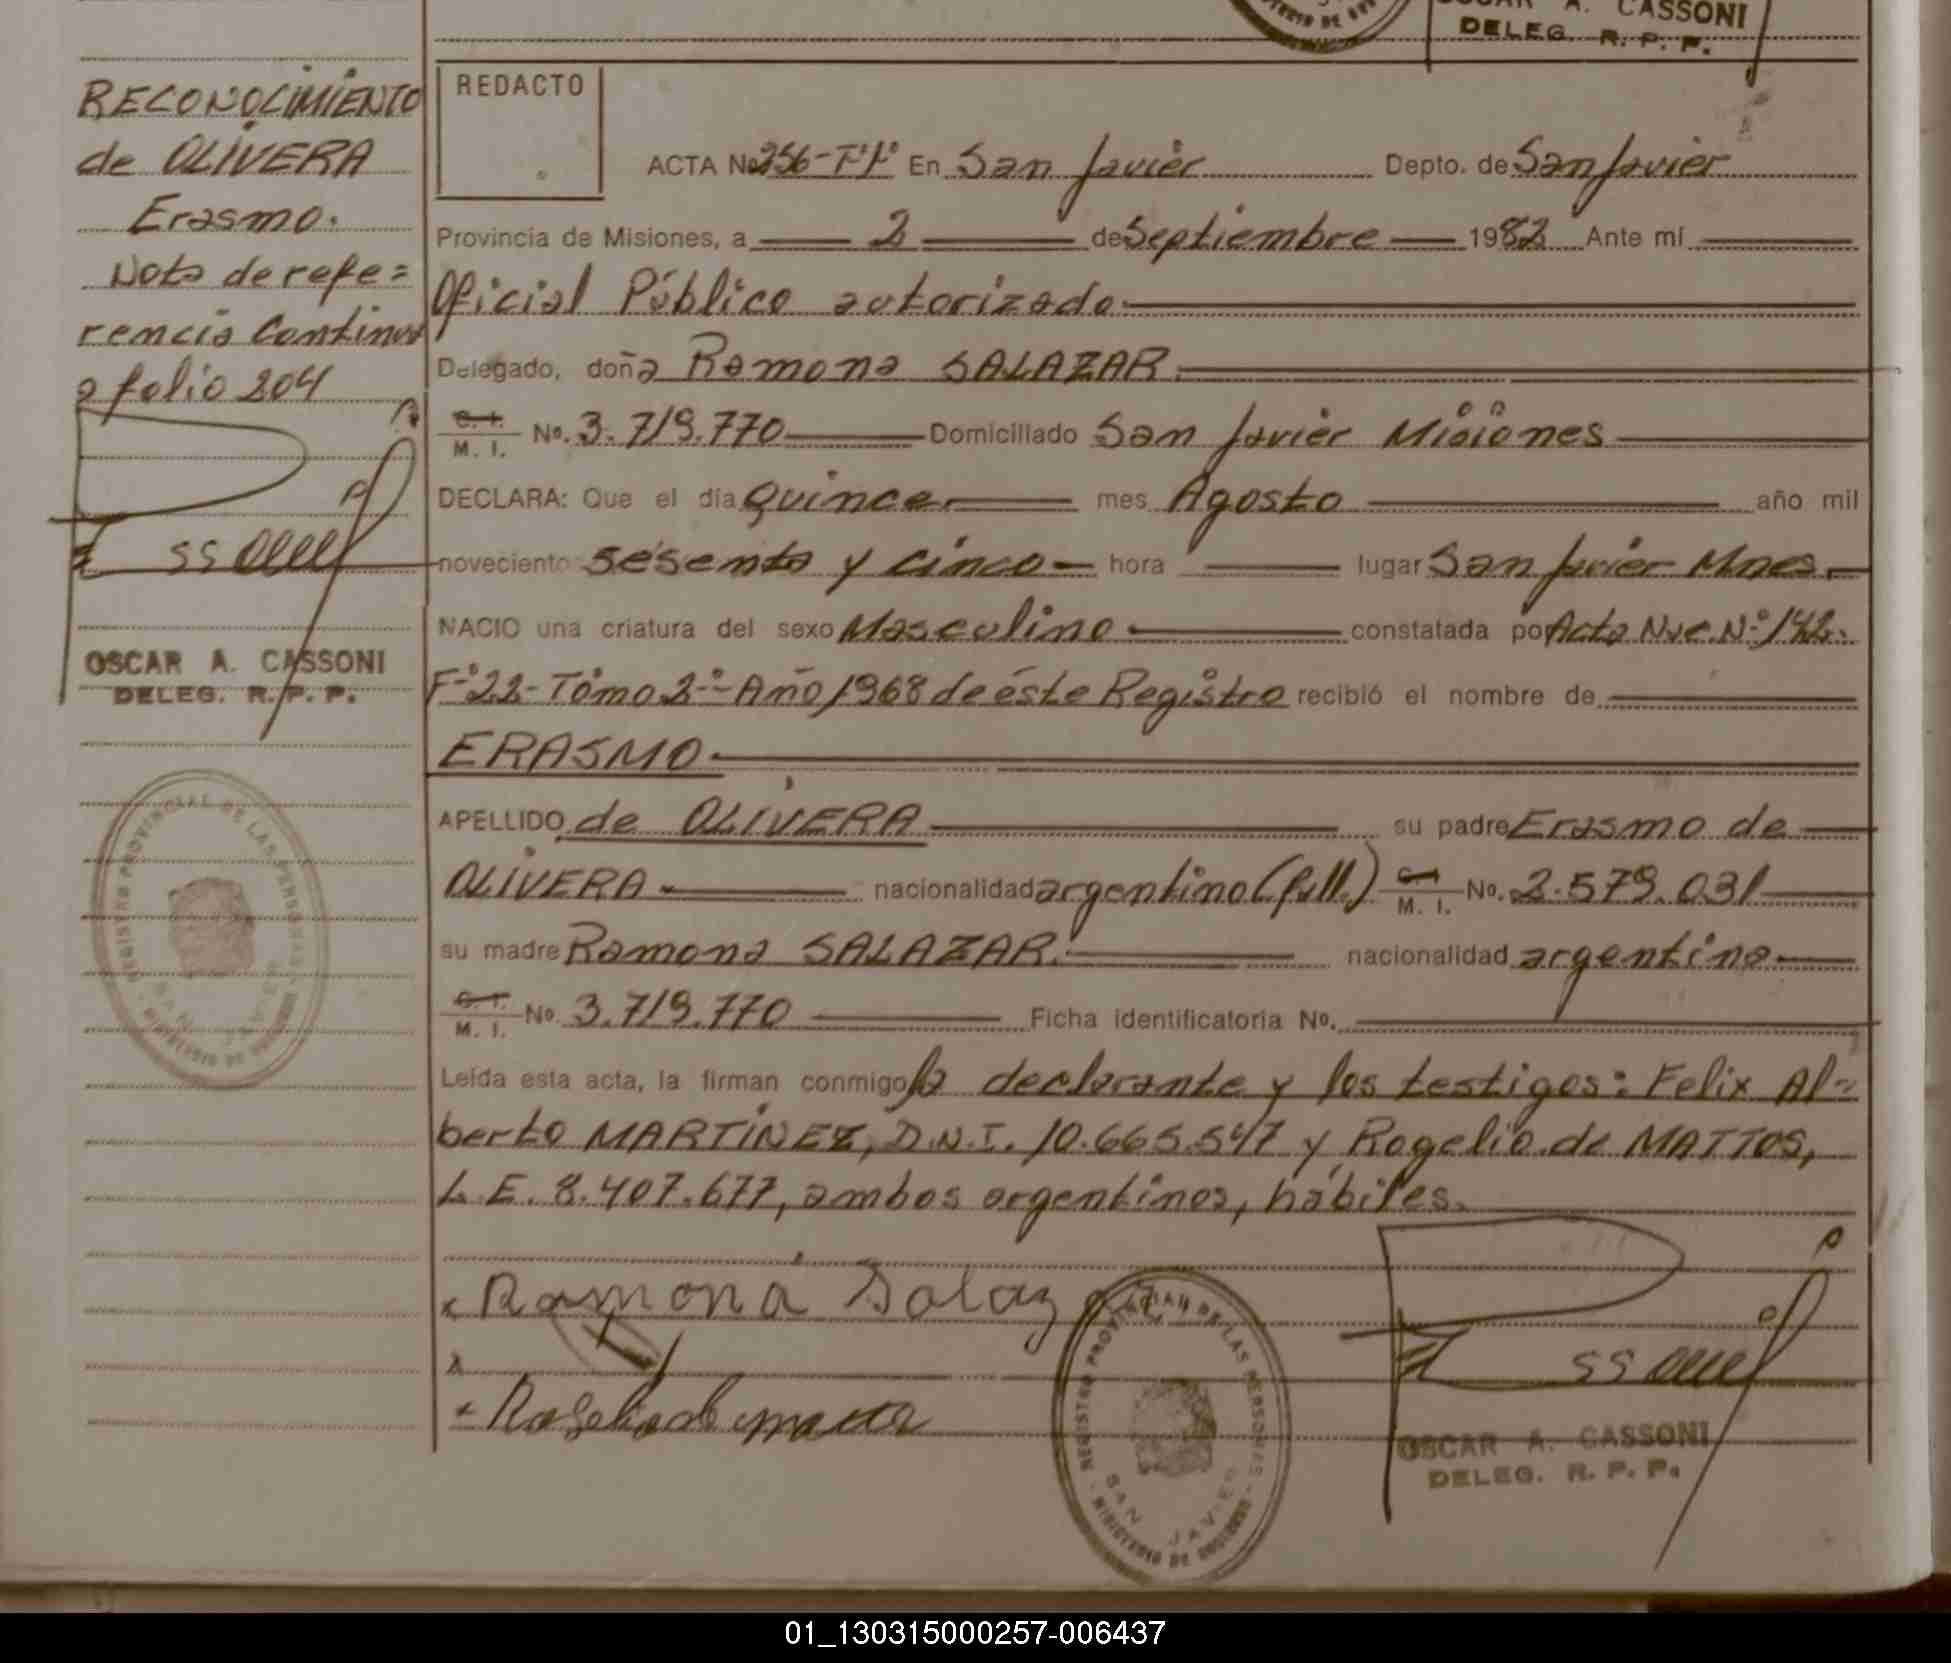 OSCAR A. CASSONI
DELEG. R. P. P.
RECONOCIMIENTO
de OLIVERA
Erasmo.
Nota de refe=
rencia Continua
a folio 204
OSCAR A. CASSONI
DELEG. R. P. P.
REGISTRO PROVINCIAL DE LAS PERSONAS
SAN JAVIER
MINISTERIO DE GOBIERNO
REDACTO
ACTA No 256-Tº1º En San Javier Depto. de San Javier
Provincia de Misiones, a 2 de Septiembre 1982 Ante mí
Oficial Público autorizado
Delegado, doña Ramona SALAZAR
C. I. / M. I. No. 3.719.770 Domiciliado San Javier Misiones
DECLARA: Que el día quince mes Agosto año mil
noveciento sesenta y cinco hora lugar San Javier Mnes.
NACIO una criatura del sexo Masculino constatada por Acta Nac. Nº 142.
Fº 22- Tomo 2º- Año 1968 de éste Registro recibió el nombre de
ERASMO
APELLIDO de OLIVERA su padre Erasmo de
OLIVERA nacionalidad argentino (fall.) C. I. / M. I. No. 2.579.031
su madre Ramona SALAZAR. nacionalidad argentina
C. I. / M. I. No. 3.719.770 Ficha identificatoria No.
Leída esta acta, la firman conmigo la declarante y los testigos: Felix Al=
berto MARTINEZ, D.N.I. 10.665.547 y Rogelio de MATTOS,
L.E. 8.407.677, ambos argentinos, hábiles.
x Ramona Salazar
x
x Rogelio de mattos
REGISTRO PROVINCIAL DE LAS PERSONAS
SAN JAVIER
MINISTERIO DE GOBIERNO
OSCAR A. CASSONI
DELEG. R. P. P.
01_130315000257-006437